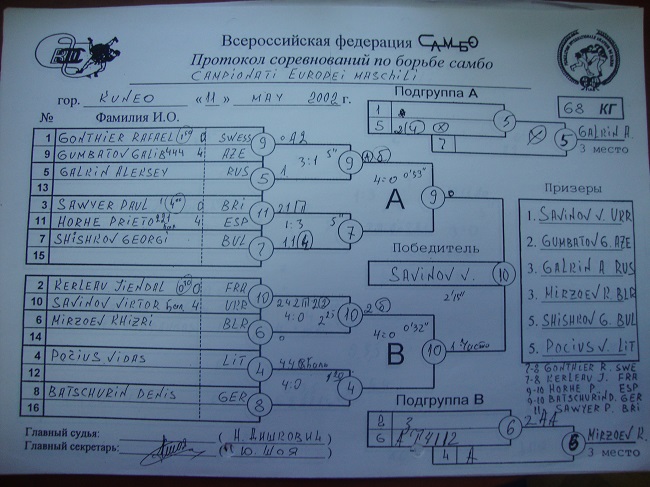 Всероссийская федерация САМБО
Протокол соревнований по борьбе самбо
CAMPIONATI EUROPEI MASCHILI
гор. KUNEO «11» MAY 2002 г.
Подгруппа А
68 КГ
№ Фамилия И.О.
1
5
7
5
5
GALKIN A.
3 место
1 GONTHIER RAFAEL 0 SWESS
9 GUMBATOV GALIB 444 4 AZE
5 GALKIN ALEKSEY RUS
13
9
5
3:1 5"
9
4=0 0'53"
3 SAWYER PAUL BRI
11 HORHE PRIETO 4 ESP
7 SHISHKOV GEORGI BUL
15
11
7
1:3 5"
7
А
9
Победитель
SAVINOV V.
10
2'15"
2 KERLEAU JIENDAL 0 FRA
10 SAVINOV VIKTOR 4 UKR
6 MIRZOEV KHIZRI BLR
14
10
6
4:0
10
4=0 0'32"
4 POZIUS VIDAS LIT
12
8 BATSCHURIN DENIS GER
16
4
8
4:0
4
В
10
Призеры
1. SAVINOV V. UKR
2. GUMBATOV G. AZE
3. GALKIN A RUS
3. MIRZOEV K. BLR
5. SHISHKOV G. BUL
5. POCIUS V. LIT
7-8 GONTHIER R. SWE
7-8 KERLEAU J. FRA
9-10 HORHE P. ESP
9-10 BATSCHURIN D. GER
11 SAWYER P. BRI
Подгруппа В
8 3
6
4
6
6
MIRZOEV K.
3 место
Главный судья:
Главный секретарь: